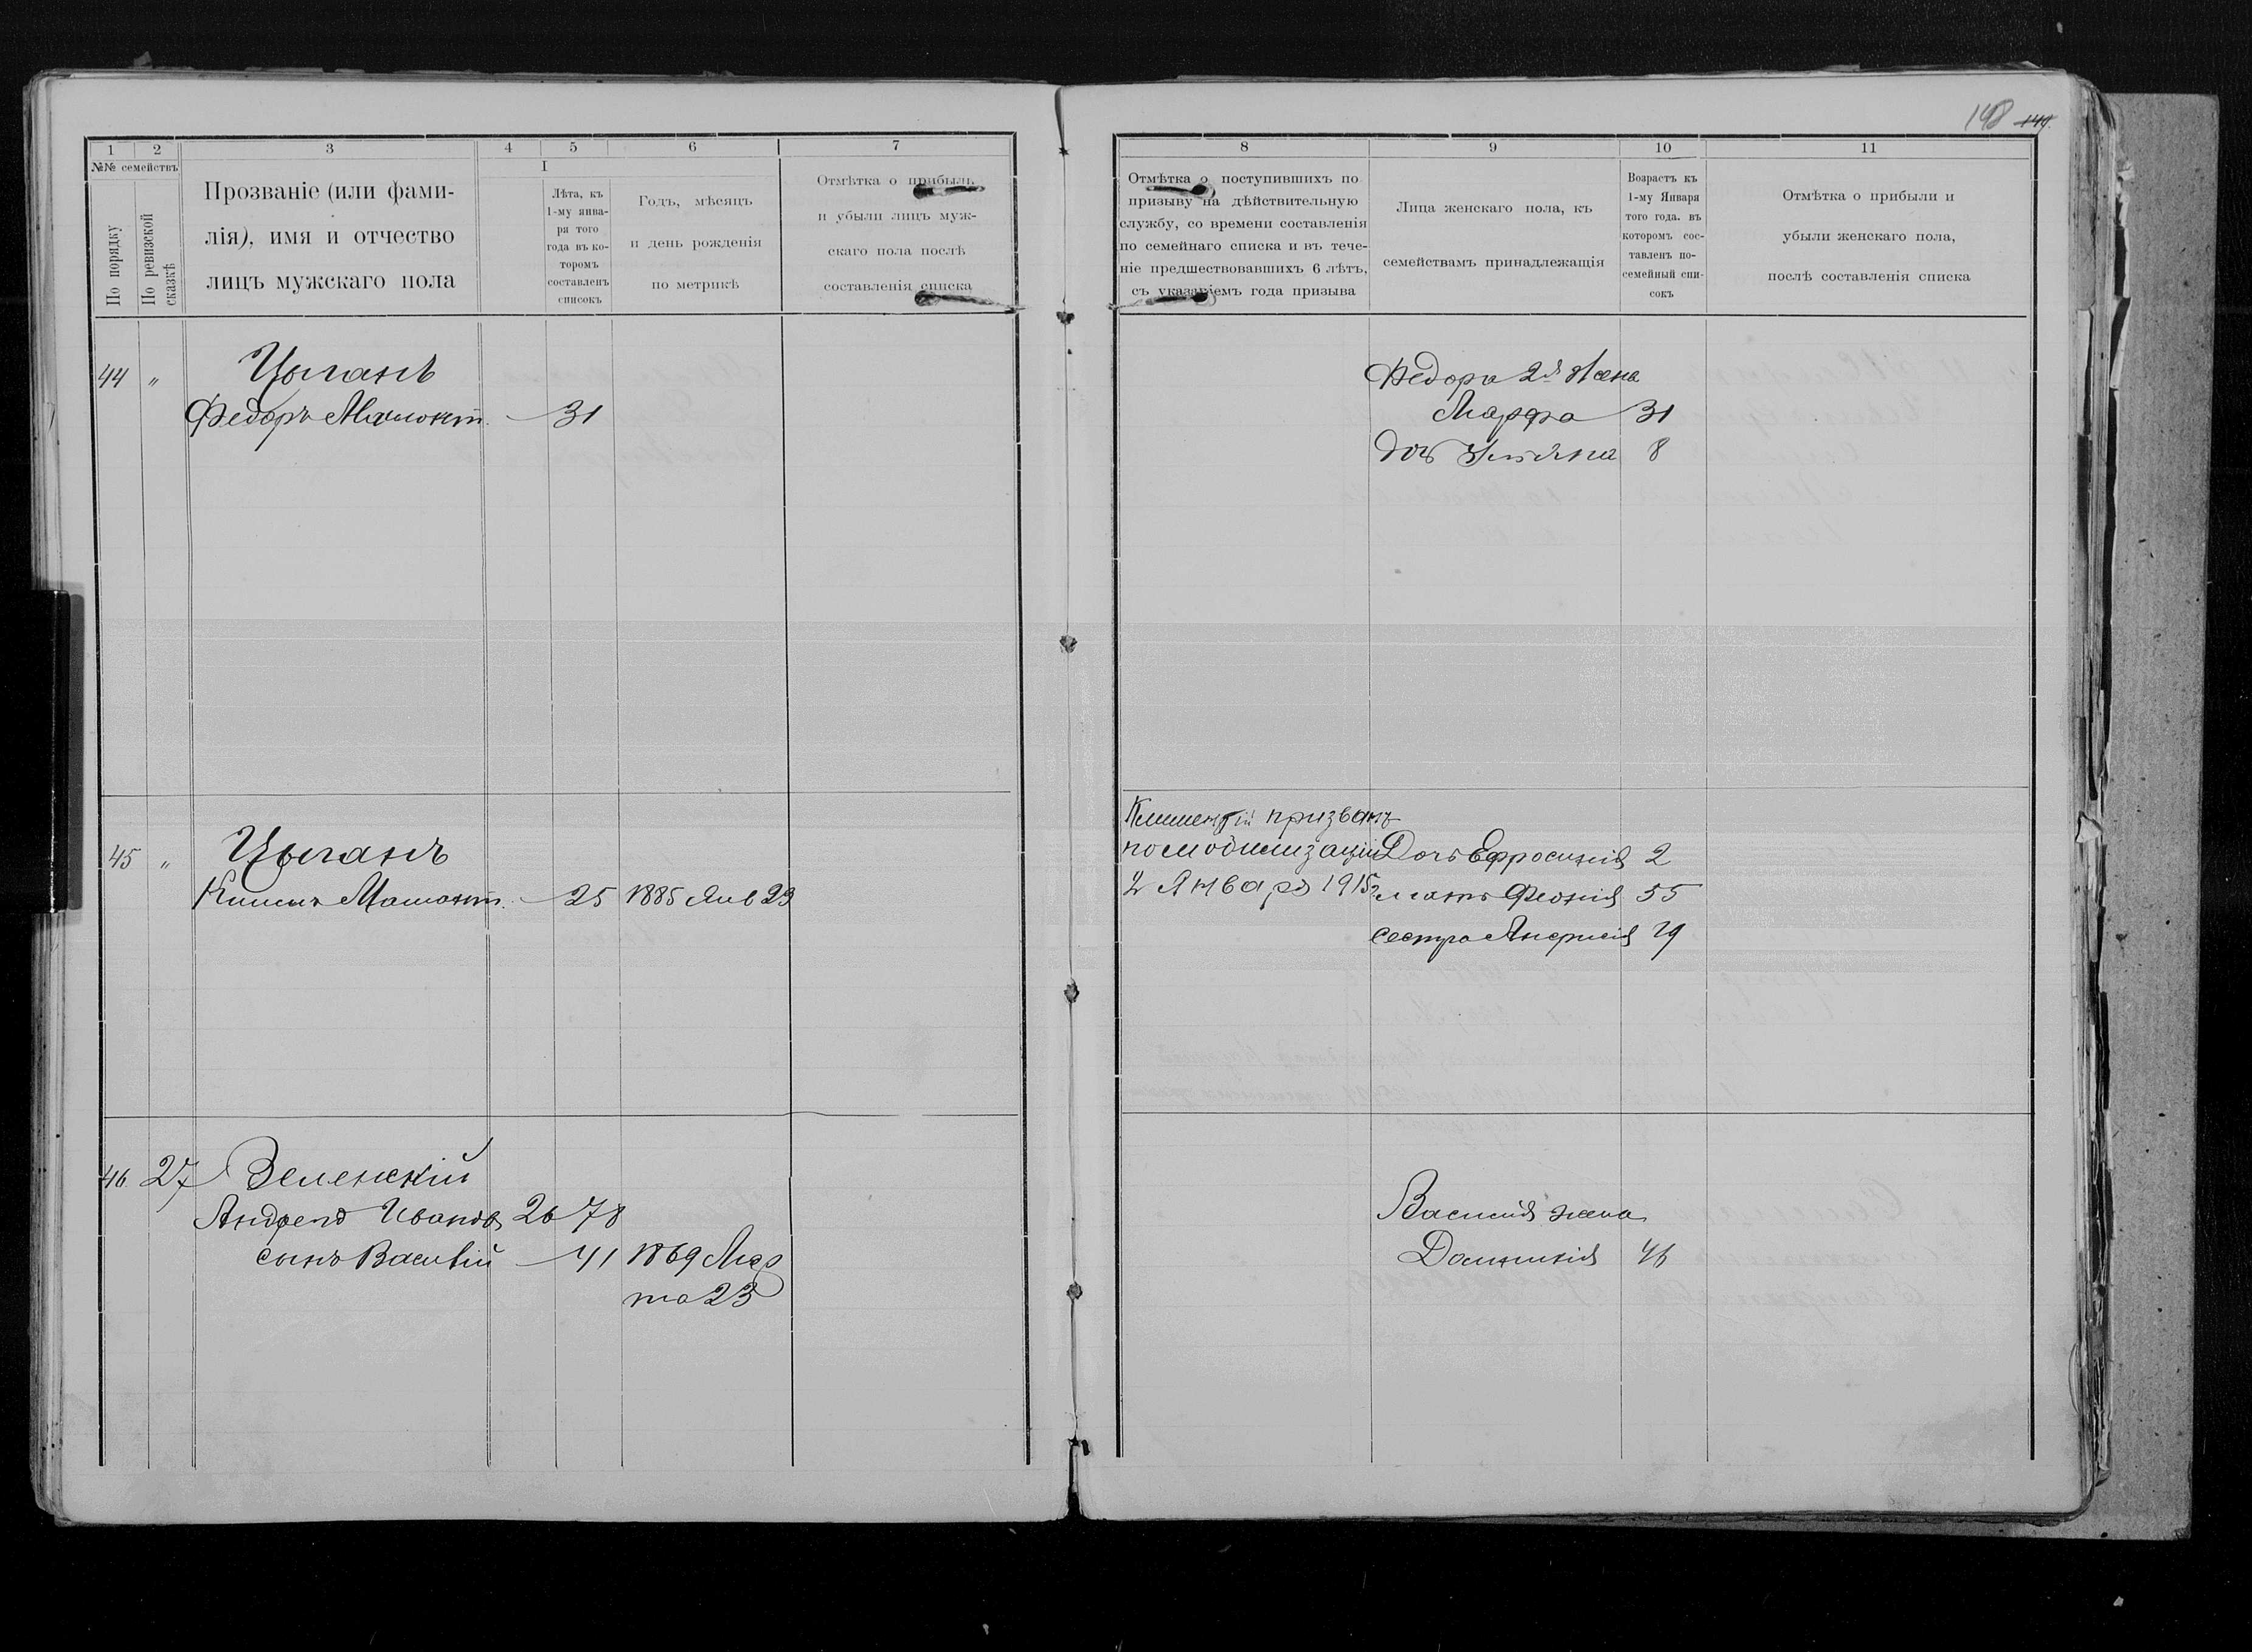 148 144.
1 2 3 4 5 6 7
№№ семействъ
По порядку
По ревизской сказкѣ
Прозваніе (или фами-
лія), имя и отчество
лицъ мужскаго пола
I
Лѣта, къ
1-му янва-
ря того
года въ ко-
торомъ
составленъ
списокъ
Годъ, мѣсяцъ
и день рожденія
по метрикѣ
Отмѣтка о прибыли
и убыли лицъ муж-
скаго пола послѣ
составленія списка
44 " Цыганъ
Федоръ Мамонт. — 31
45 " Цыганъ
Климъ Мамонт. — 25 1885 Янв 23
46 27 Зеленскій
Андрей Ивановъ 26 78
сынъ Василій — 41 1869 Мар
та 23
8 9 10 11
Отмѣтка о поступившихъ по
призыву на дѣйствительную
службу, со времени составленія
по семейнаго списка и въ тече-
ніе предшествовавшихъ 6 лѣтъ,
съ указаніемъ года призыва
Лица женскаго пола, къ
семействамъ принадлежащія
Возрастъ къ
1-му Января
того года. въ
которомъ сос-
тавленъ по-
семейный спи-
сокъ
Отмѣтка о прибыли и
убыли женскаго пола,
послѣ составленія списка
Федора 2я Жена
Марфа 31
дочь Ульяна 8
Климентій призванъ
по мобилизаціи
2 Января 1915г
Дочь Ефросинія 2
мать Феонія 55
сестра Анфисія 19
Василія жена
Домникія 46